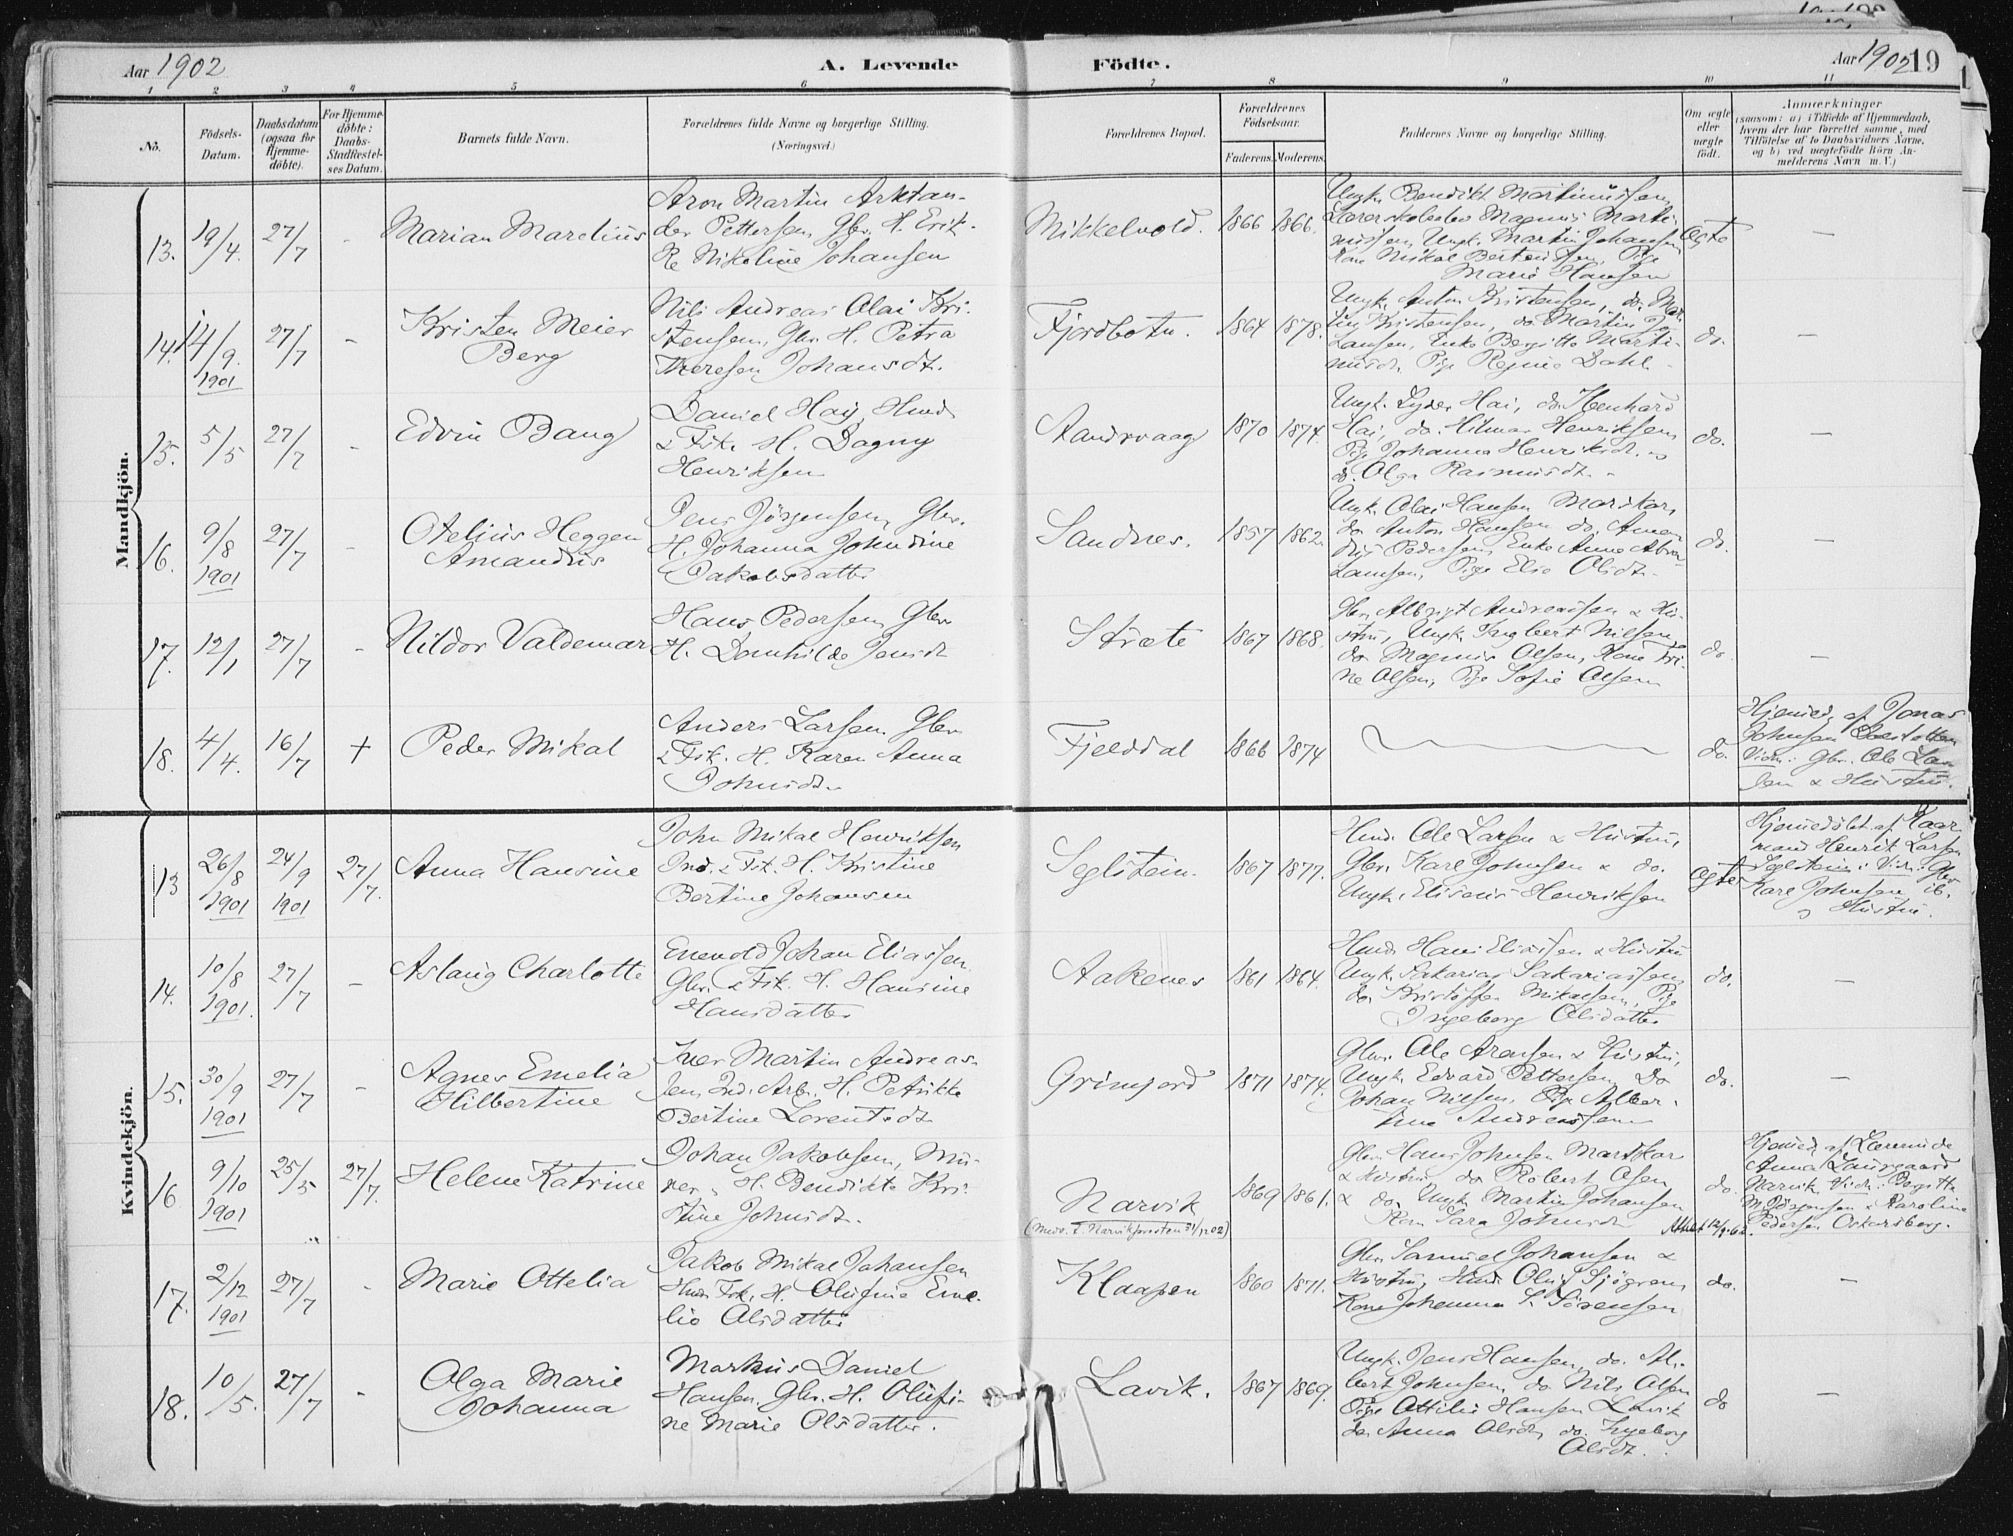 Aar 1902
A. Levende
Födte.
Aar 1902
19
1 2 3 4 5 6 7 8 9 10 11
No.
Födsels-
Datum.
Daabsdatum
(ogsaa for
Hjemme-
döbte).
For Hjemme-
döbte:
Daabs-
Stadfæstel-
ses Datum.
Barnets fulde Navn.
Forældrenes fulde Navne og borgerlige Stilling.
(Næringsvei.)
Forældrenes Bopæl.
Forældrenes
Födselsaar.
Faderens.
Moderens.
Faddernes Navne og borgerlige Stilling.
Om ægte
eller
uægte
födt.
Anmærkninger
(saasom: a) i Tilfælde af Hjemmedaab,
hvem der har forrettet samme, med
Tilföielse af to Daabsvidners Navne,
og b) ved uægtefödte Börn An-
melderens Navn m. V.)
Mandkjön.
13. 19/4. 27/7 - Marian Marelius
Aron Martin Arktan-
der Pettersen, Gbr. H. Erik-
Re Nikoline Johansen
Mikkelvold. 1866 1866.
Ungk. Bendikt Martinussen,
Magnus Marti-
nussen, Ungk. Martin Johansen
Kone Mikal Berteussen, Pige
Marie Hansen
ægte —
14. 14/9. 1901 27/7 - Kristen Meier
Berg
Nils Andreas Olai Kri-
stensen, Gbr. H. Petra
Theresen Johansdt.
Fjordbotn. 1864 1878.
Ungk. Anton Kristensen, do. Mar-
tin Kristensen, do. Martin Jo-
hansen, Enke Bergitte Marti-
nusdt. Pige Regine Dahl
do. —
15. 5/5 27/7 - Edvin Bang
Daniel Hai, Husm.
& Fisk. H. Dagny
Henriksen
Aandvaag 1870 1874.
Ungk. Lyder Hai, do.
Hai, do. Hilmar Henriksen,
Pige Johanna Henriksdt.
do. Olga Rasmusdt.
do. —
16. 9/8 1901 27/7 - Otelius Heggen
Amandus
Jens Jörgensen, Gbr.
H. Johanna Johndine
Jakobsdatter
Sandnes. 1857 1862.
Ungk. Olai Hansen
do. Anton Hansen do. Aman-
dus Pedersen, Enke Anne Abra-
hamsen, Pige Elie Olsdt.
do. —
17. 12/1 27/7 - Nildor Valdemar
Hans Pedersen, Gbr.
H. Jensdt
Stræte 1867 1868.
Gbr. Albrigt Andreassen & Hu-
stru, Ungk. Ingbert Nilsen,
do. Magnus Olsen, Kone Tri-
ne Olsen, Pige Sofie Olsen
do. —
18. 4/4. 16/7 + Peder Mikal
Anders Larsen Gbr.
& Fisk. H. Karen Anna
Johnsdt.
Fjelddal 1866 1874
do.
Hjemed. af Jonas
Johnsen
Vidn: Gbr. Ole Lar-
sen & Hustru.
Kvindekjön.
13 26/8 1901 24/9 1901 27/7. Anna Hansine
John Mikal Henriksen
Ind. & Fisk. H. Kristine
Bertine Johansen
Seglstein. 1867 1877.
Husm. Ole Larsen & Hustru,
Gbr. Karl Johnsen & do.
Ungk. Elisæus Henriksen
ægte
Hjemedöbt af Kaar-
mand Henrik Larsen
Seglstein: Vidn. Gbr
Karl Johnsen ib.
& Hustru.
14. 10/8 1901. 27/7 - Aslaug Charlotte
Enevold Johan Eliassen
Gbr. & Fisk. H. Hansine
Hansdatter
Aakenes 1861 1864.
Husm. Hans Eliassen & Hustru
Ungk. Sakarias Sakariassen,
do. Kristoffer Mikalsen, Pige
Ingeborg Olsdatter
do. —
15. 30/9 1901 27/7 - Agnes Emelia
Hilbertine
Iver Martin Andreas-
sen, Ind. Arb. H. Petrikke
Bertine Lorentsdt
Grimjord 1871 1874.
Gbr. Ole Arensen & Hustru,
Ungk. Edvard Pettersen, Do
Johan Nilsen, Pige Alber-
tine Andreassen
do. —
16 9/10 1901 25/5 27/7. Helene Katrine
Johan Jakobsen, Mu-
rer, H. Bendikte Kri-
stine Johnsdt.
Narvik 1869 1861.
(Medd. t. Narvikpresten 31/12 02)
Gbr. Hans Johnsen
& Hustru do Robert Olsen
& do. Ungk. Martin Johansen
Kone Sara Johnsdt
do.
Attest 12/9-62.
Hjemed. af
Anna
Narvik Vidn: Bergitte
M. Jörgensen & Karoline
Pedersen Oskarsberg.
17. 2/12 1901 27/7 - Marie Ottelia
Jakob Mikal Johansen
Husm. Fisk. H. Olufine Eme-
lie Olsdatter
Klaapen 1860 1871.
Gbr. Samuel Johansen &
Hustru, Husm. Oluf Sjögren,
Kone Johanna S. Sörensen
do. —
18. 10/5. 27/7 - Olga Marie
Johanna
Markus Daniel
Hansen, Gbr. H. Olufi-
ne Marie Olsdatter.
Lavik. 1867 1869.
Ungk. Jens Hansen, do. Al-
bert Johnsen, do Nils Olsen
Pige Ottilie Hansen Lavik
do. Anna Olsdt, do. Ingeborg
Olsdt.
do —